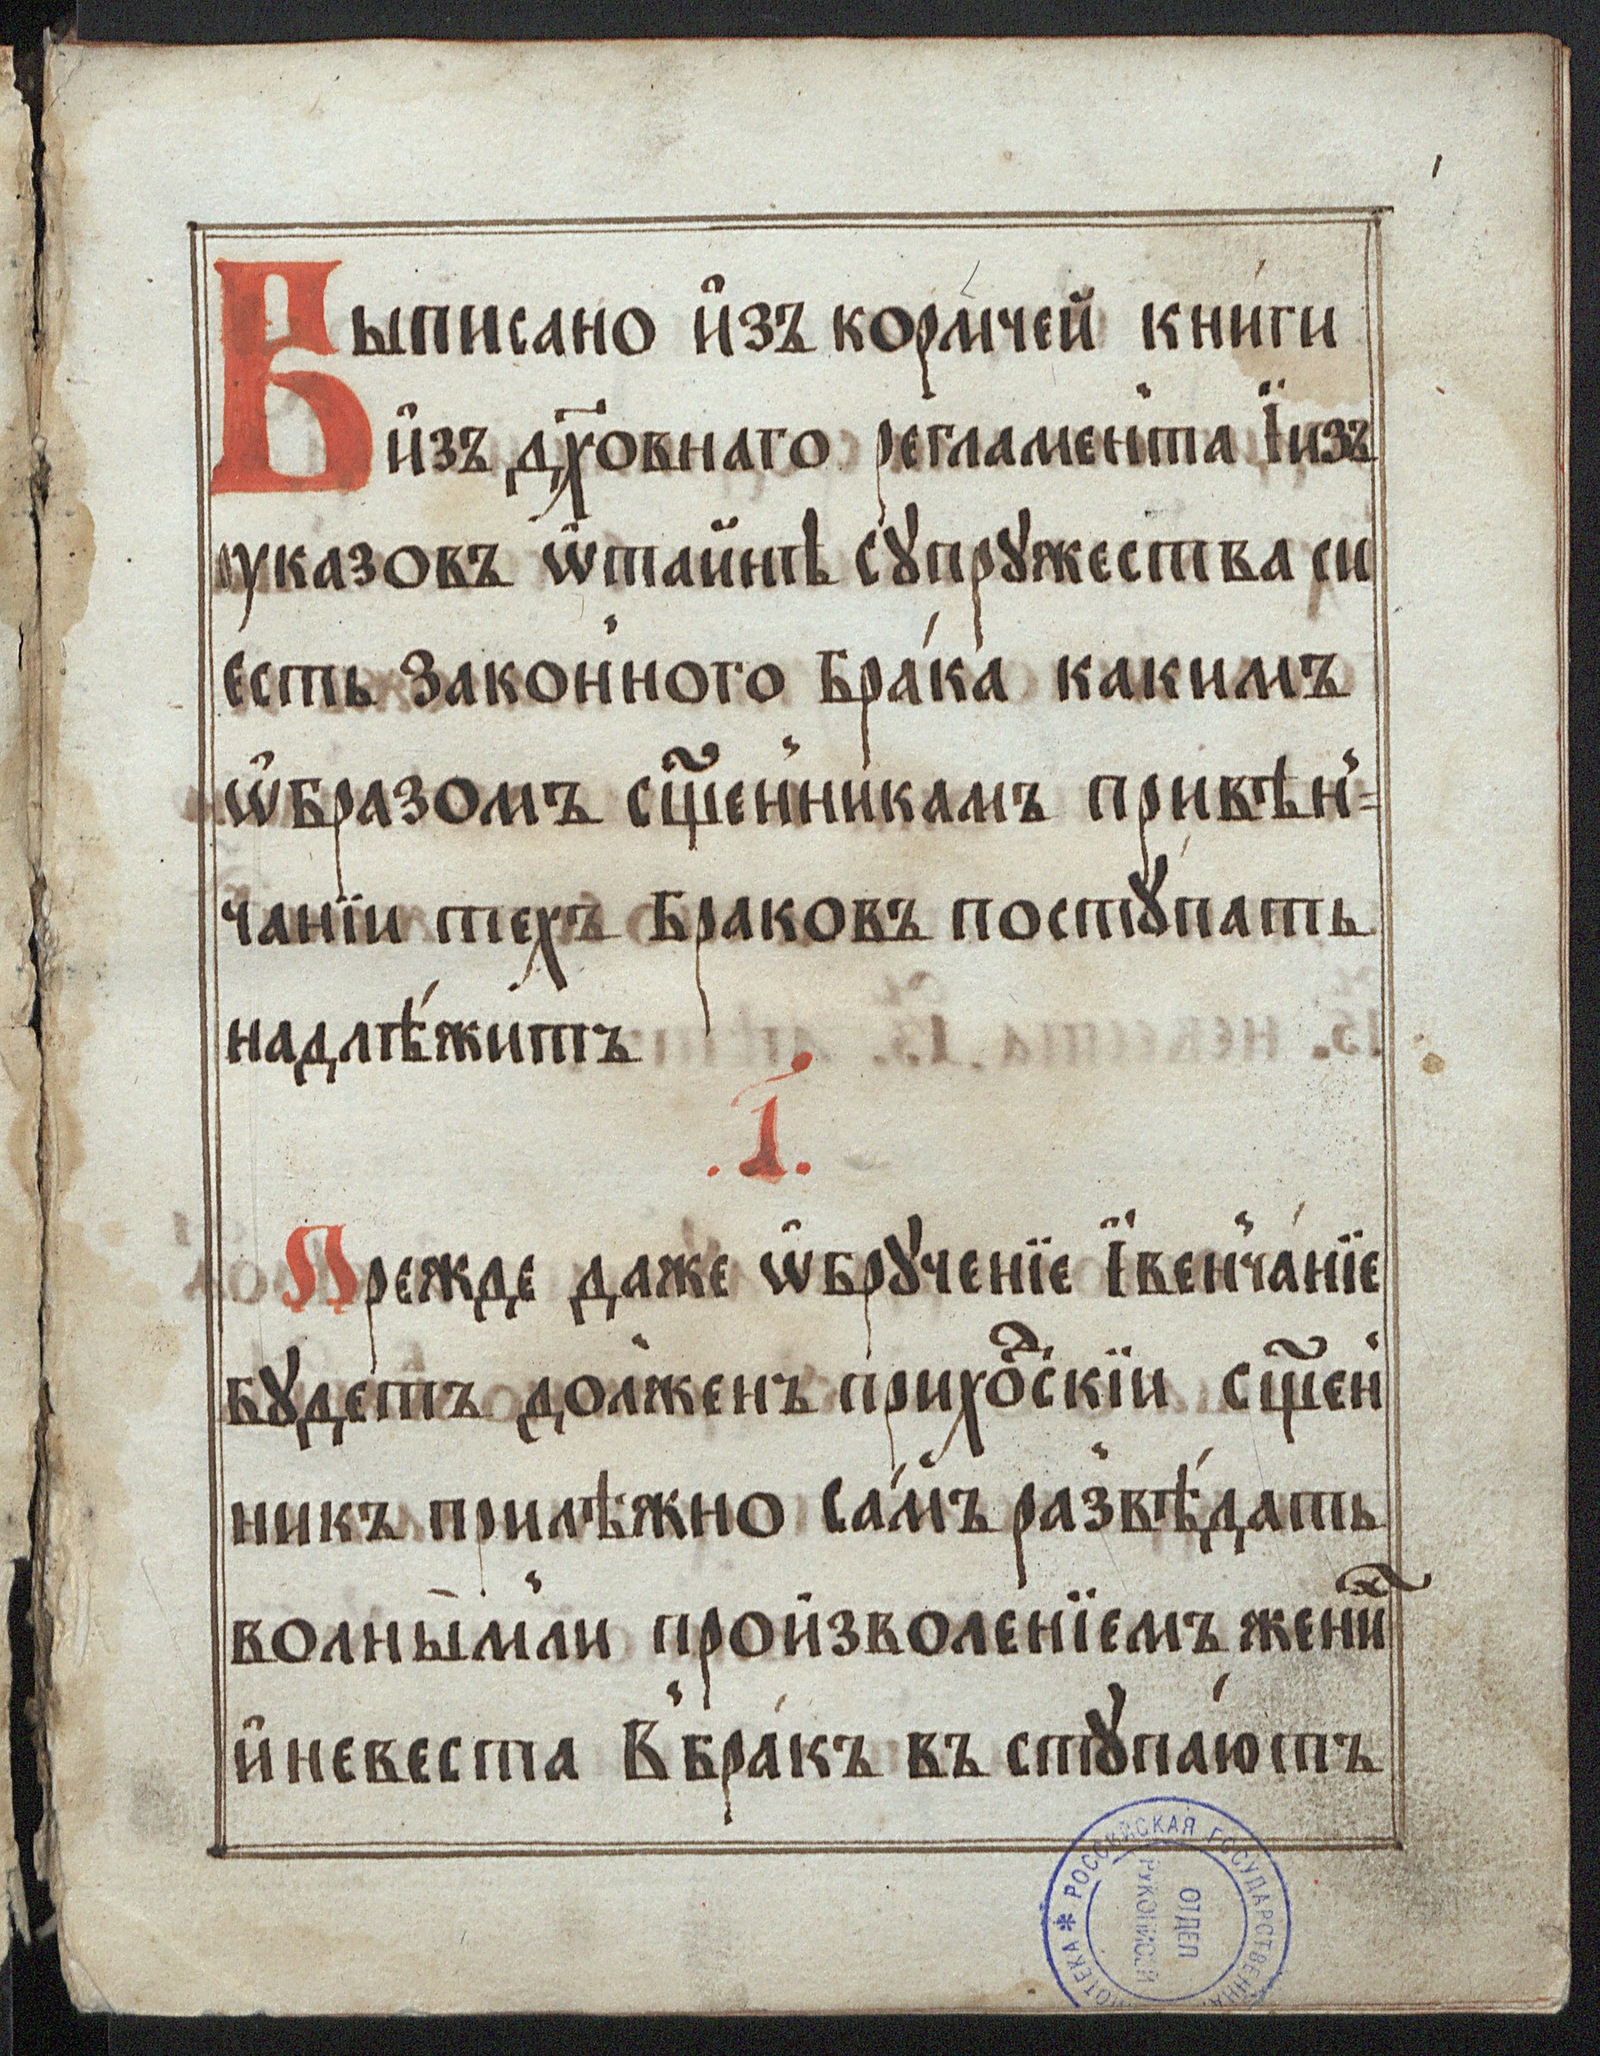 1
Выписано и҆зъ кормчей книги
и҆зъ дх҃овнаго регламента І҆изъ
указовъ ѡ҆тайнѣ сꙋпрꙋжества си
есть законного брака какимъ
ѡ҆бразомъ сщ҃енникамъ привѣн=
чанїи техъ браковъ постꙋпать
надлѣжитъ
.І.
Прежде даже ѡ҆брꙋченїе І҆венчанїе
бꙋдетъ долженъ прихоⷣскїи сщ҃ен
никъ прилѣжно самъ развѣдать
волнымли произволенїемъ жениⷯ
и҆невеста Вбракъ въ стꙋпаютъ
РОССИЙСКАЯ ГОСУДАРСТВЕННА
ОТДЕЛ
РУКОПИСЕЙ
ИОТЕКА